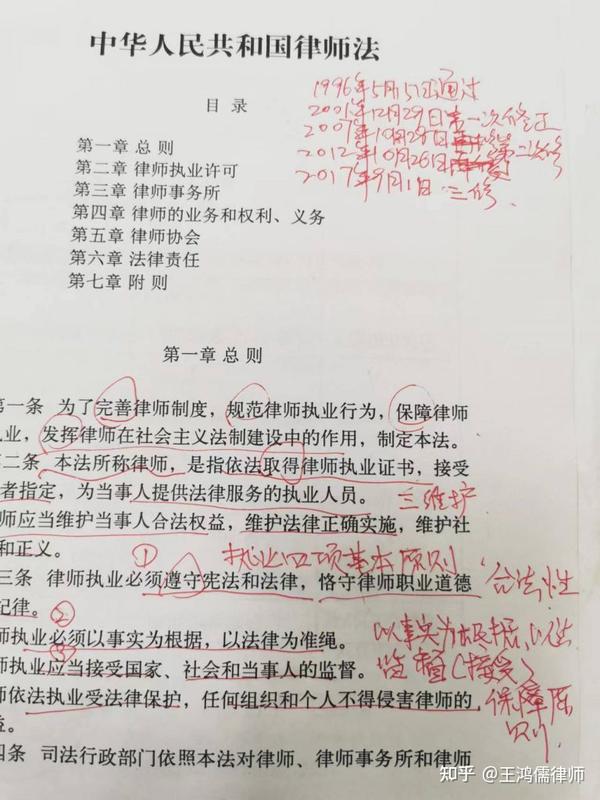 中华人民共和国律师法
目 录
1996年5月15日通过
2001年12月29日第一次修正
2007年10月28日第二次修
2012年10月26日
2017年9月1日 三修.
第一章 总 则
第二章 律师执业许可
第三章 律师事务所
第四章 律师的业务和权利、义务
第五章 律师协会
第六章 法律责任
第七章 附 则
第一章 总 则
第一条 为了完善律师制度，规范律师执业行为，保障律师
业，发挥律师在社会主义法制建设中的作用，制定本法。
第二条 本法所称律师，是指依法取得律师执业证书，接受
者指定，为当事人提供法律服务的执业人员。
三维护
师应当维护当事人合法权益，维护法律正确实施，维护社
和正义。
① 执业四项基本原则
三条 律师执业必须遵守宪法和法律，恪守律师职业道德
合法性
纪律。
②
师执业必须以事实为根据，以法律为准绳。
以事实为根据，以法
③
师执业应当接受国家、社会和当事人的监督。
监督（接受）
师依法执业受法律保护，任何组织和个人不得侵害律师的
保障原则
益。
四条 司法行政部门依照本法对律师、律师事务所和律师
知乎 @王鸿儒律师